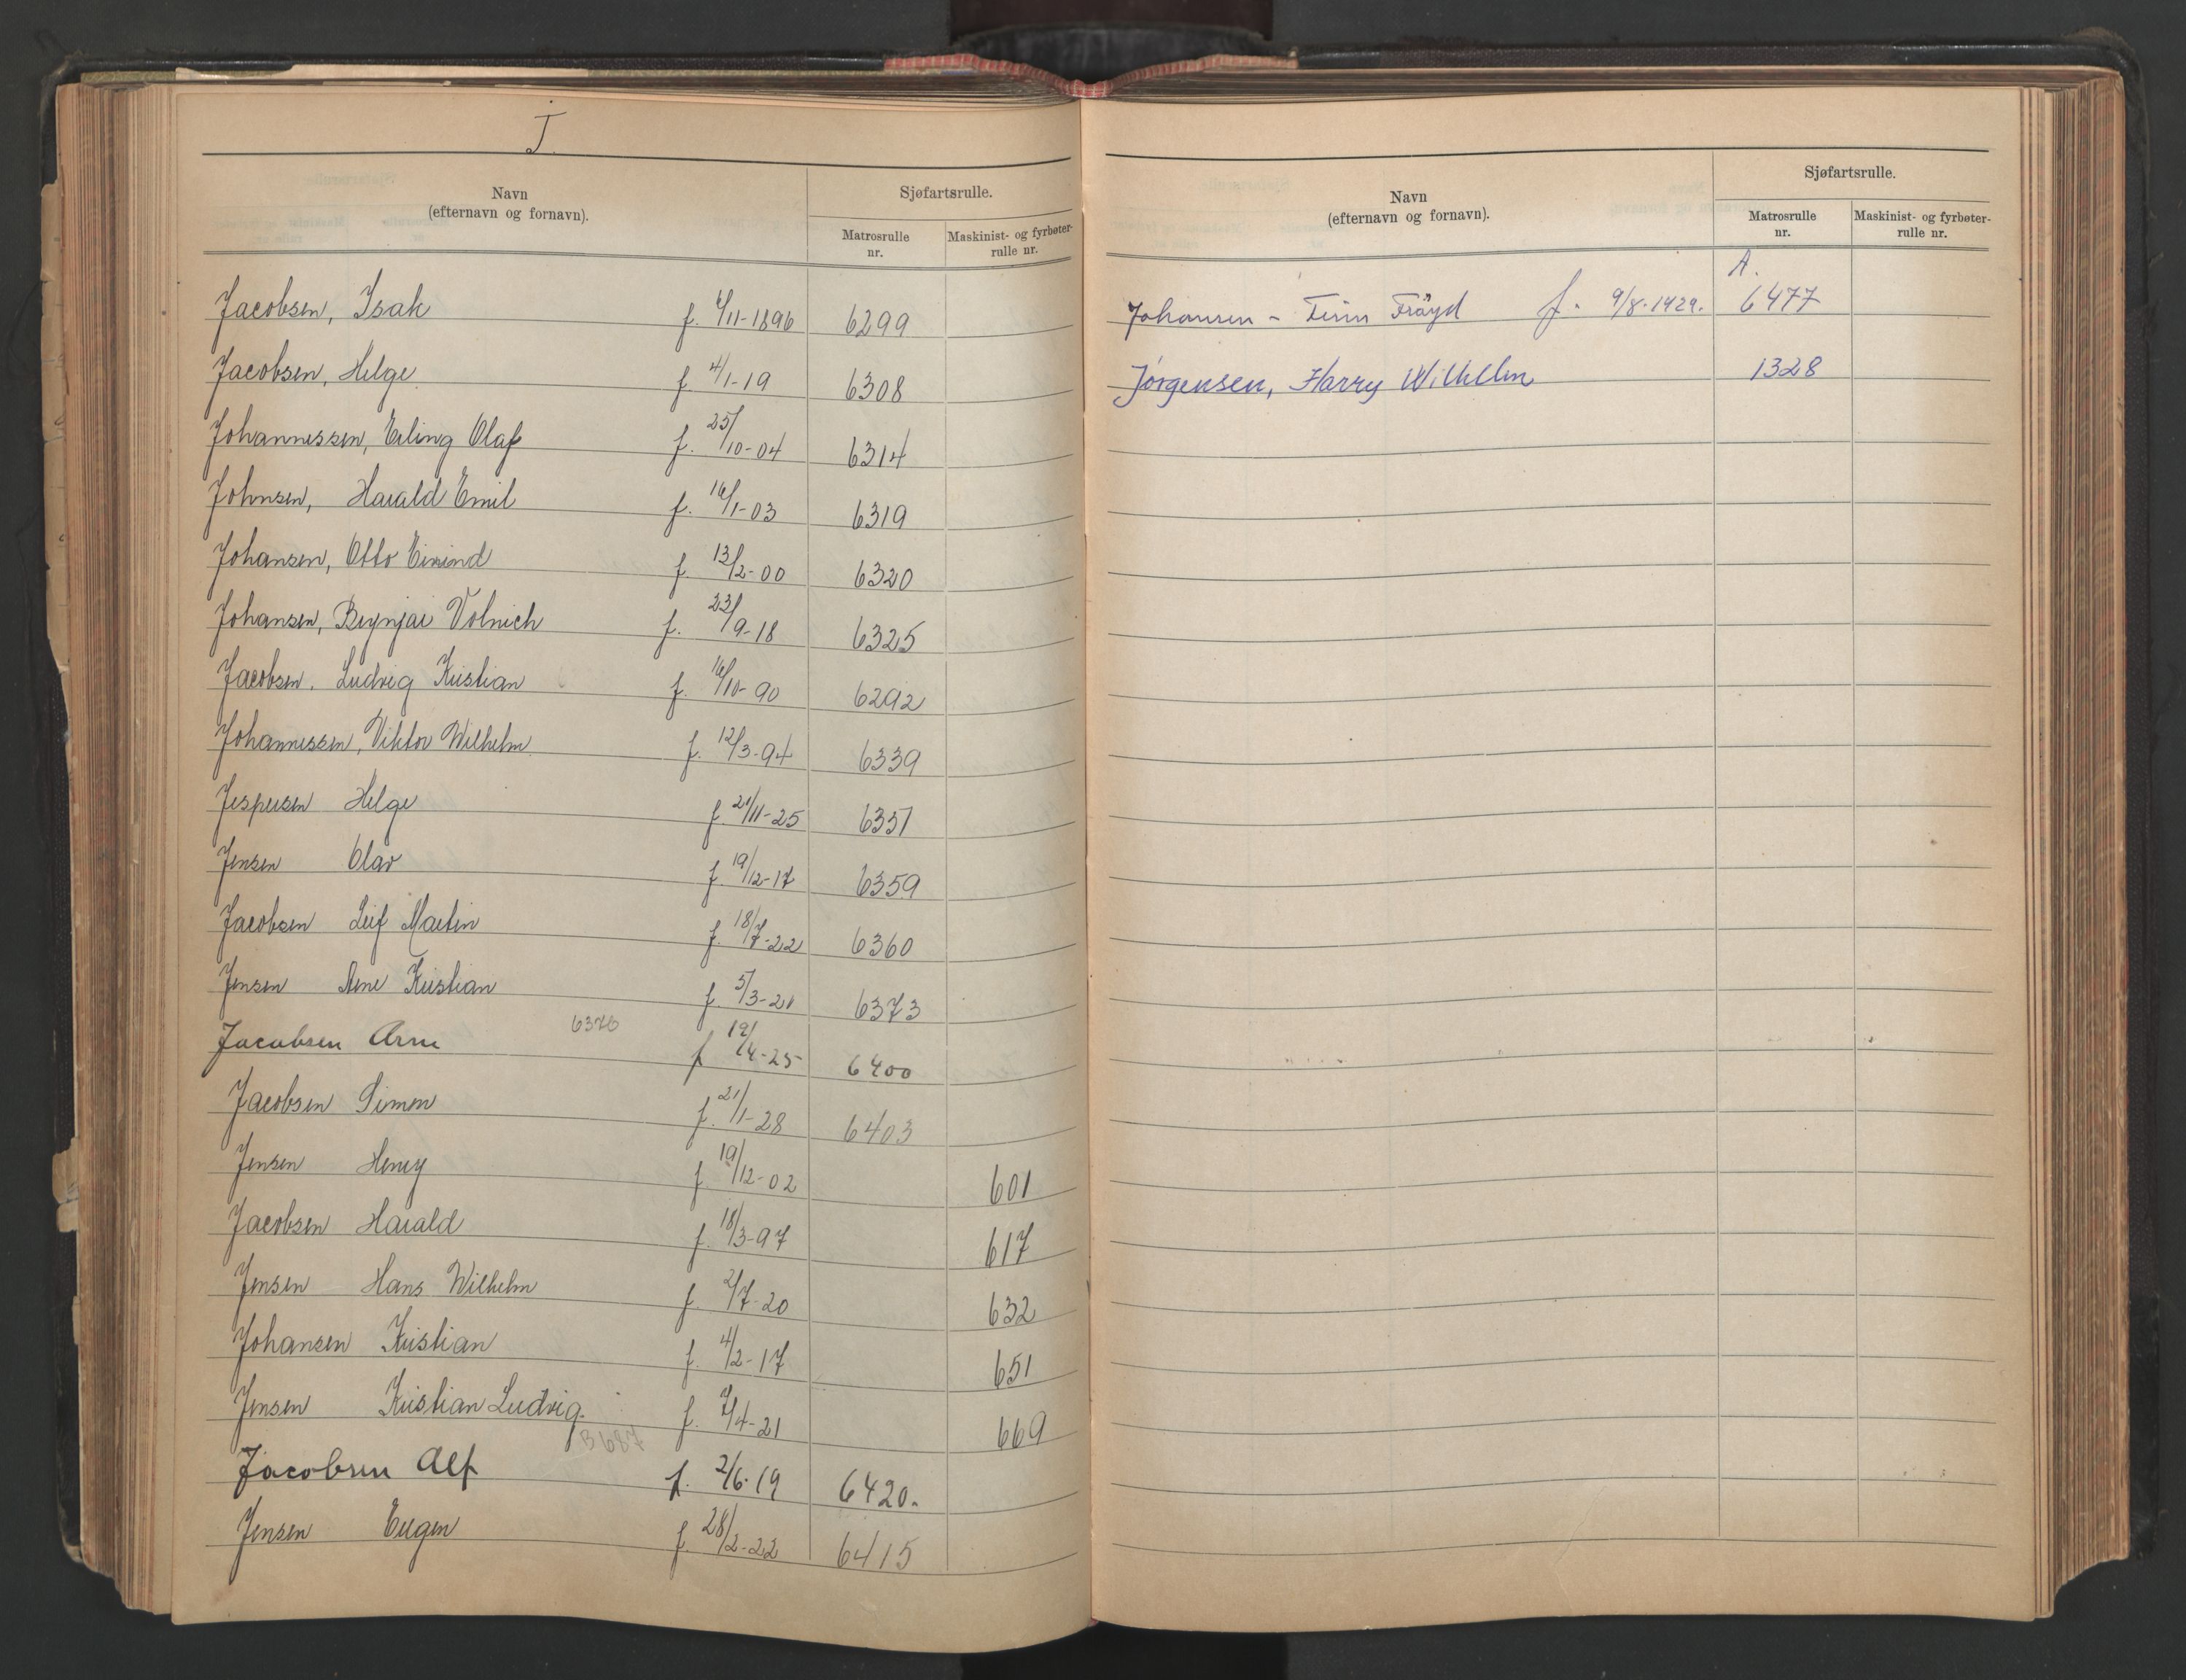 J.
Navn
(efternavn og fornavn).
Sjøfartsrulle.
Matrosrulle
nr.
Maskinist- og fyrbøter-
rulle nr.
Jacobsen, Isak f. 6/11-1896 6299
Jacobsen, Helge f. 4/1-19 6308
Johannessen, Erling Olaf f. 25/10-04 6314
Johnsen, Harald Emil f. 16/1-03 6319
Johansen, Otto Eivind f. 13/2-00 6320
Johansen, Brynjar Volnich f. 23/9-18 6325
Jacobsen, Ludvig Kristian f. 16/10-90 6292
Johannessen, Viktor Wilhelm f. 12/3-94 6339
Jespersen Helge f. 21/11-25 6351
Jensen Olav f. 19/12-17 6359
Jacobsen Leif Martin f. 18/7-22 6360
Jensen Arne Kristian f. 5/3-21 6373
6376
Jacobsen Arne f 19/4-25 6400
Jacobsen Simon f. 21/1-28 6403
Jensen Henry f 19/12-02 601
Jacobsen Harald f. 18/3-97 617
Jensen Hans Wilhelm f 2/7-20 632
Johansen Kristian f. 4/2-17 651
Jensen Kristian Ludvig. f. 7/4-21 669
B 687
Jacobsen Alf f. 2/6-19 6420.
Jensen Eugen f. 28/2-22 6415
Navn
(efternavn og fornavn).
Sjøfartsrulle.
Matrosrulle
nr.
Maskinist- og fyrbøter-
rulle nr.
A.
Johansen - Finn Fröyd f. 9/8-1929. 6477
Jørgensen, Harry Wilhelm 1328